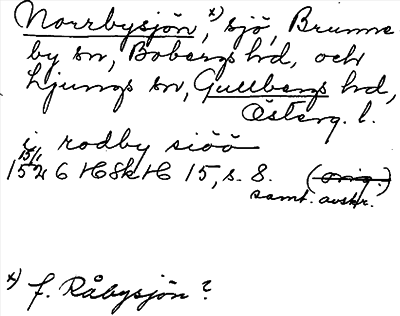 Norrbysjön, x) sjö, Brunne
by sn, Bobergs hd, och
Ljungs sn, Gullbergs hd,
Österg. l.
i rodby siöö
15 15/1 26 HSkH 15, s. 8. (orig.)
samt. avskr.
x) f. Råbysjön?